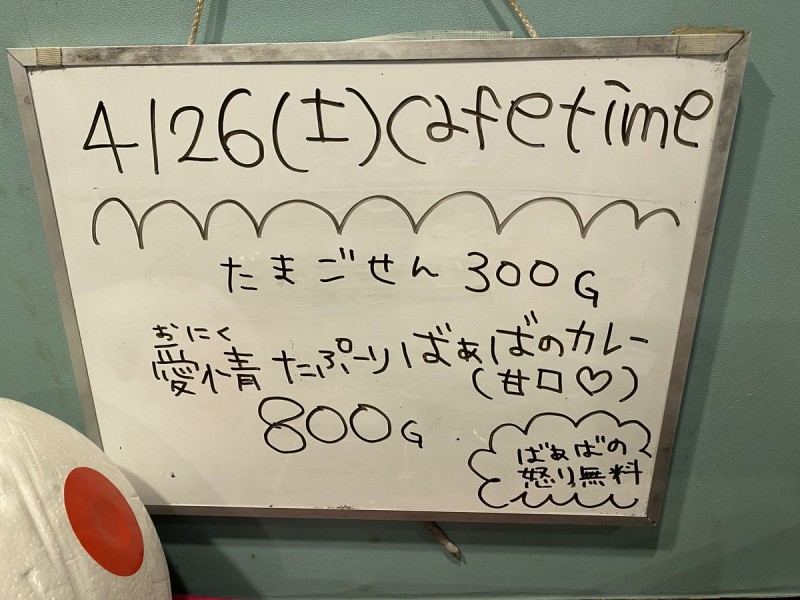 4/26(土)Cafetime
たまごせん 300G
おにく
愛情たぷーりばぁばのカレー
(甘口♡)
800G
ばぁばの
怒り無料